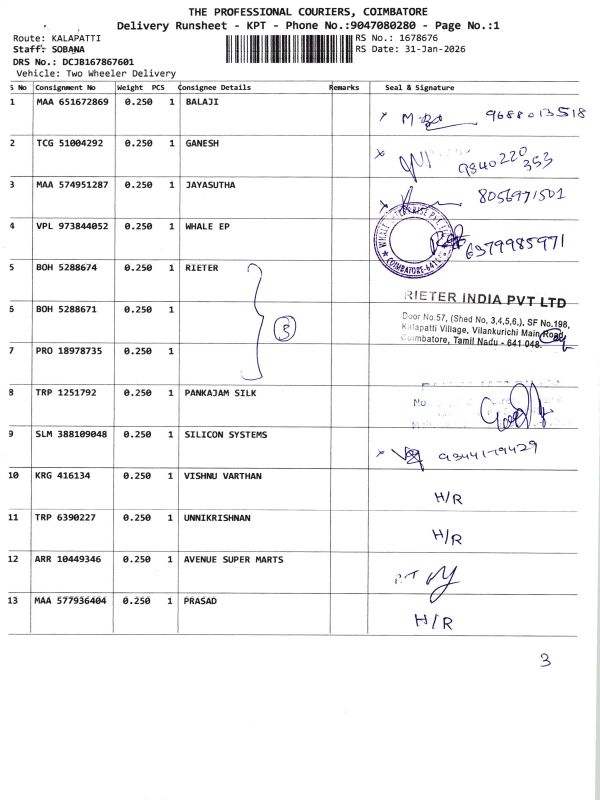 THE PROFESSIONAL COURIERS, COIMBATORE
Delivery Runsheet - KPT - Phone No.:9047080280 - Page No.:1
Route: KALAPATTI
RS No.: 1678676
Staff: SOBANA
RS Date: 31-Jan-2026
DRS No.: DCJB167867601
Vehicle: Two Wheeler Delivery
S No Consignment No Weight PCS Consignee Details Remarks Seal & Signature
1 MAA 651672869 0.250 1 BALAJI 9688013518
2 TCG 51004292 0.250 1 GANESH 9840220353
3 MAA 574951287 0.250 1 JAYASUTHA 8056971501
4 VPL 973844052 0.250 1 WHALE EP 6379985971
5 BOH 5288674 0.250 1 RIETER
RIETER INDIA PVT LTD
Door No.57, (Shed No, 3,4,5,6,), SF No.198,
Kalapatti Village, Vilankurichi Main Road,
Coimbatore, Tamil Nadu - 641 048.
6 BOH 5288671 0.250 1
3
7 PRO 18978735 0.250 1
8 TRP 1251792 0.250 1 PANKAJAM SILK
No
9 SLM 388109048 0.250 1 SILICON SYSTEMS 9344179429
10 KRG 416134 0.250 1 VISHNU VARTHAN H/R
11 TRP 6390227 0.250 1 UNNIKRISHNAN H/R
12 ARR 10449346 0.250 1 AVENUE SUPER MARTS
13 MAA 577936404 0.250 1 PRASAD H/R
3